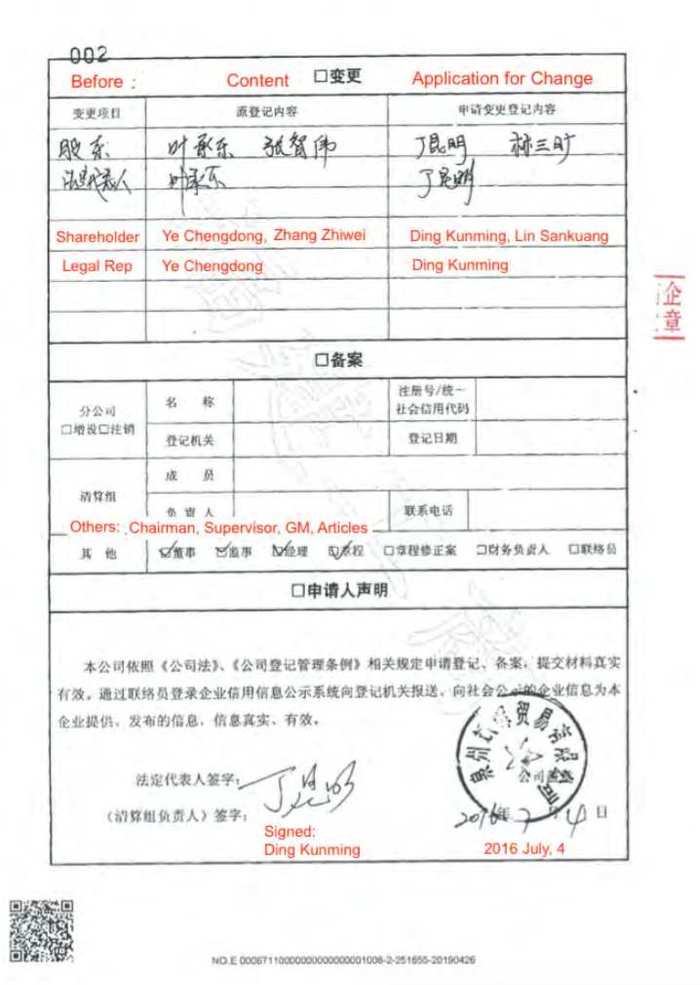 002
□变更
Before : Content Application for Change
变更项目 原登记内容 申请变更登记内容
股东 叶承东 张智伟 丁昆明 林三旷
法定代表人 叶承东 丁昆明
Shareholder Ye Chengdong, Zhang Zhiwei Ding Kunming, Lin Sankuang
Legal Rep Ye Chengdong Ding Kunming
企
章
□备案
分公司
□增设□注销
名 称
注册号/统一
社会信用代码
登记机关 登记日期
清算组
成 员
负 责 人 联系电话
Others: Chairman, Supervisor, GM, Articles
其 他 ☑董事 ☑监事 ☑经理 ☑章程 □章程修正案 □财务负责人 □联络员
□申请人声明
本公司依照《公司法》、《公司登记管理条例》相关规定申请登记、备案，提交材料真实
有效。通过联络员登录企业信用信息公示系统向登记机关报送、向社会公示的企业信息为本
企业提供、发布的信息，信息真实、有效。
法定代表人签字： 丁昆明
（清算组负责人）签字： 2016年7月4日
泉州 贸易有限 公司
Signed:
Ding Kunming
2016 July, 4
NO.E 00067110000000000000001008-2-251655-20190426